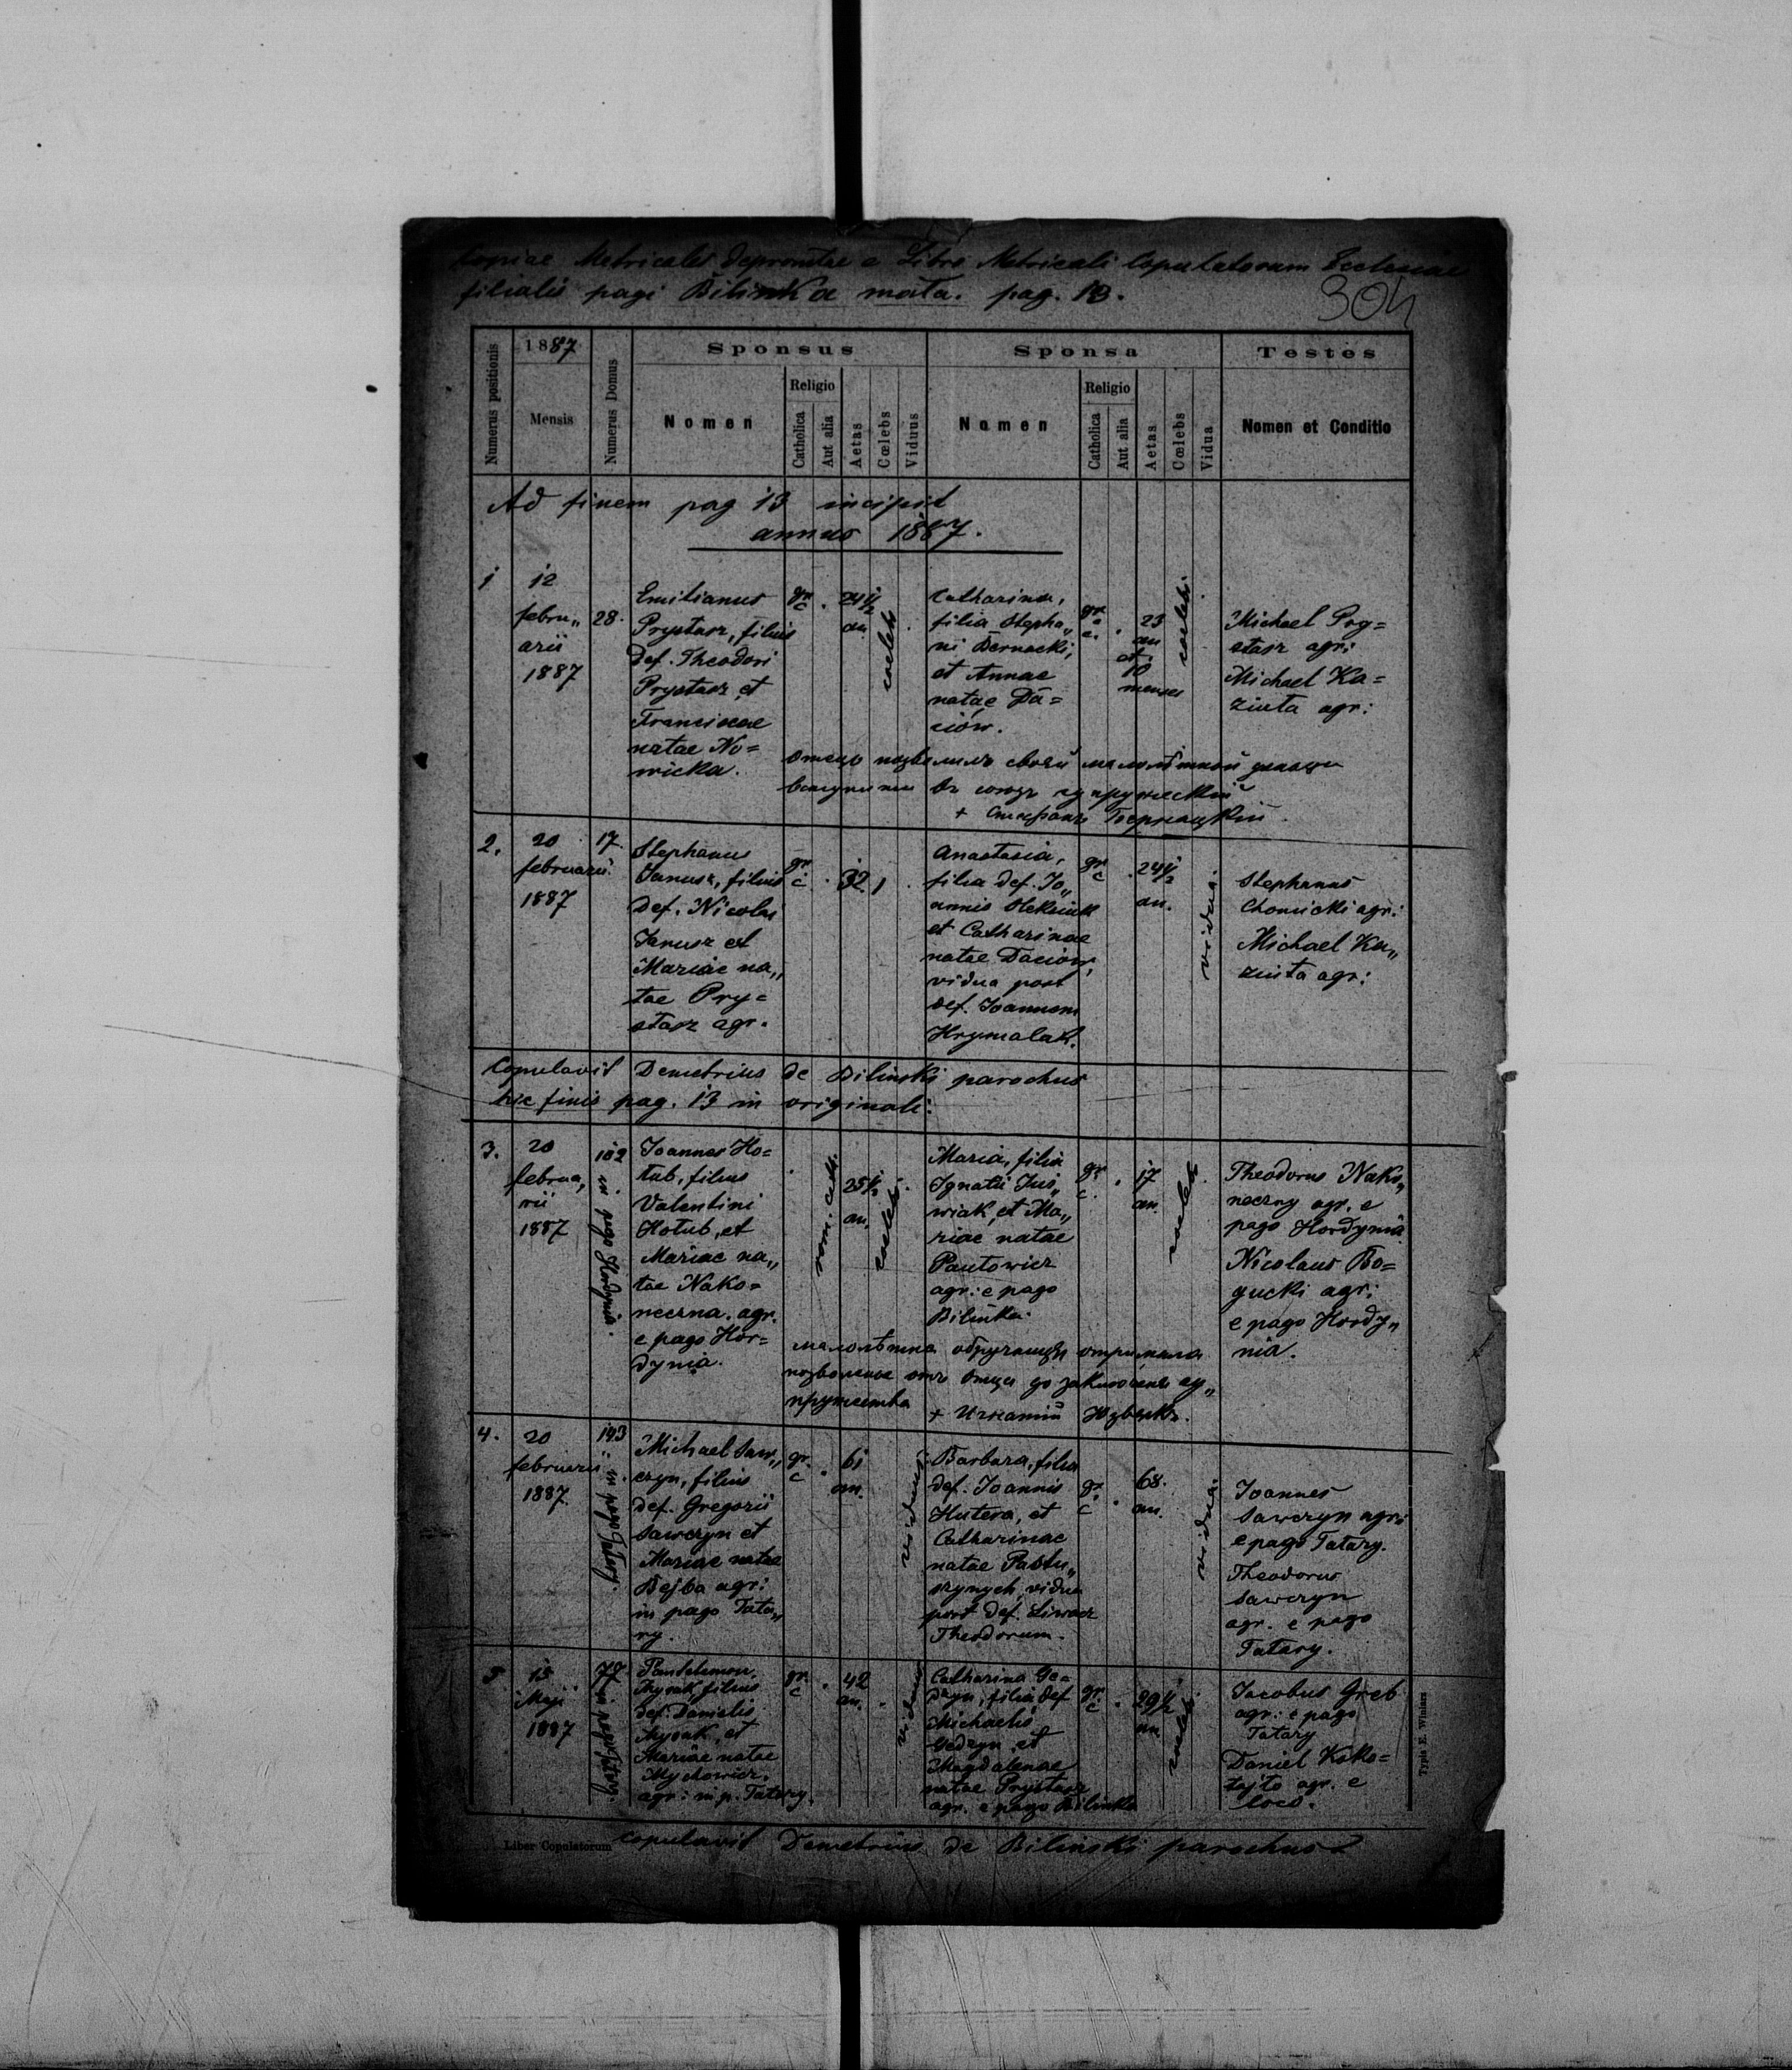 Copiae Metricales depromtae e Libro Metricali Copulatorum Ecclesiae
filialis pagi Bilinka mała. pag. 13.
304
Numerus positionis
1887
Mensis
Numerus Domus
Sponsus
Nomen
Religio
Catholica
Aut alia
Aetas
Cœlebs
Viduus
Sponsa
Nomen
Religio
Catholica
Aut alia
Aetas
Cœlebs
Vidua
Testes
Nomen et Conditio
Ad finem pag 13 incipit
annus 1887.
1
12
febru„
arii
1887
28.
Emilianus
Prystasz, filius
def. Theodori
Prystasz et
Franciscae
natae No=
wicka.
gr
c
24½
an.
coelebs
Catharina,
filia Stepha„
ni Bernacki,
et Annae
natae Da=
ciów.
gr
c.
23
an
et
10
menses
coelebs.
Michael Pry=
stasz agr:
Michael Ka=
ziuta agr:
отець позволилъ своей малолѣтной
вступити въ союзъ супружескій
+ Стефанъ Бернацкій
2.
20
februarii
1887
17.
Stephanus
Janusz, filius
def. Nicolai
Janusz et
Mariae na„
tae Pry=
stasz agr.
gr
c
32
1
Anastasia,
filia def. Jo„
annis Oleksiuk
et Catharinae
natae Daciow,
vidua post
def. Joannem
Hrymalak.
gr
c
24½
an.
vidua.
Stephanus
Chomicki agr:
Michael Ka„
ziuta agr:
Copulavit Demetrius de Bilinski parochus
hic finis pag. 13 in originali:
3.
20
februa„
rii
1887
102
in pago Hordynia.
Joannes Ho=
łub, filius
Valentini
Hołub, et
Mariae na„
tae Nako=
neczna. agr.
e pago Hor=
dynia.
rom. cath.
25½
an.
coelebs
Maria, filia
Ignatii Jus„
wiak, et Ma„
riae natae
Pautowicz
agr: e pago
Bilinka.
gr
c.
17
an.
coelebs
Theodorus Nako„
neczny agr. e
pago Hordynia
Nicolaus Bo=
gucki agr:
e pago Hordy„
nia.
малолѣтна обручаица отримала
позволеніе отъ отца до заключенія су„
пружества
+ Игнатій
4.
20
februarii
1887
193
in pago Tatary.
Michael Saw„
czyn, filius
def. Gregorii
Sawczyn et
Mariae natae
Bejba agr:
in pago Tata„
ry.
gr.
c
61
an.
viduus.
Barbara, filia
def. Joannis
Hutera, et
Catharinae
natae Pastu„
szynych, vidua
post def. Siwacz
Theodorum.
gr
c
68.
an.
vidua.
Joannes
Sawczyn agr:
e pago Tatary.
Theodorus
Sawczyn
agr. e pago
Tatary.
5
15
Maji
1887
77
in pago Tatary.
Pantelemon,
filius
def. Danielis
et
Mariae natae
Mychowicz,
agr: in p. Tatary.
gr.
c
42
an.
viduus
Catharina Ge=
dzyn, filia def
Michaelis
Gedzyn, et
Magdalenae
natae Prystasz
agr. e pago Bilinka
gr.
c
29½
an
coelebs.
Jacobus Greb
agr: e pago
Tatary
Daniel Koko=
tajło agr. e
loco.
Typis E. Winiarz
Liber Copulatorum
Copulavit Demetrius de Bilinski parochus